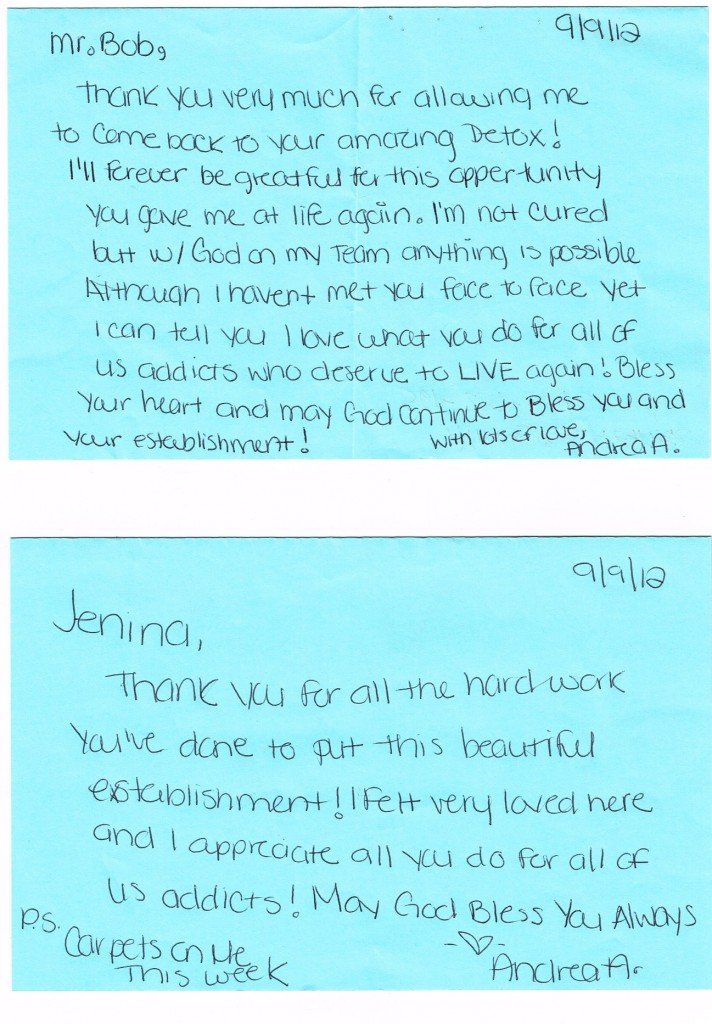 9/9/12
Mr. Bob,
Thank you very much for allowing me
to come back to your amazing Detox!
I'll forever be greatful for this oppertunity
you gave me at life again. I'm not cured
but w/ God on my Team anything is possible
Although I havent met you face to face yet
I can tell you I love what you do for all of
us addicts who deserve to LIVE again! Bless
your heart and may God continue to Bless you and
your establishment!
with lots of love,
Andrea A.
9/9/12
Jenina,
Thank you for all the hard work
You've done to put this beautiful
establishment! I felt very loved here
and I appreciate all you do for all of
us addicts! May God Bless You Always
P.S.
Carpets on Me
This week
Andrea A.